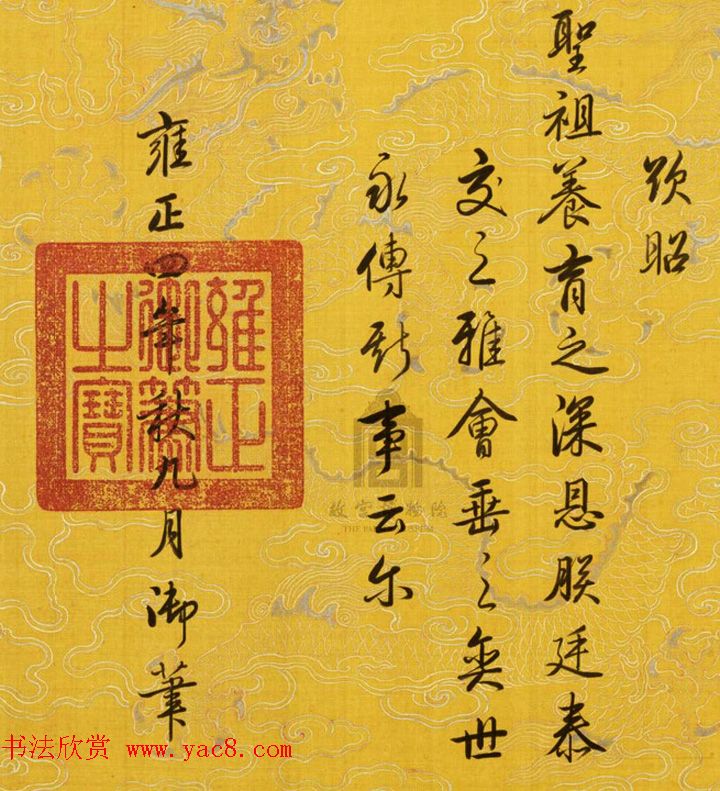 欤昭
聖祖養育之深恩朕廷泰
交之雅會垂之奕世
永傳斯事云尔
雍正四年秋九月御筆
雍正
御筆
之寶
故宫博物院
THE PALACE MUSEUM
书法欣赏 www.yac8.com